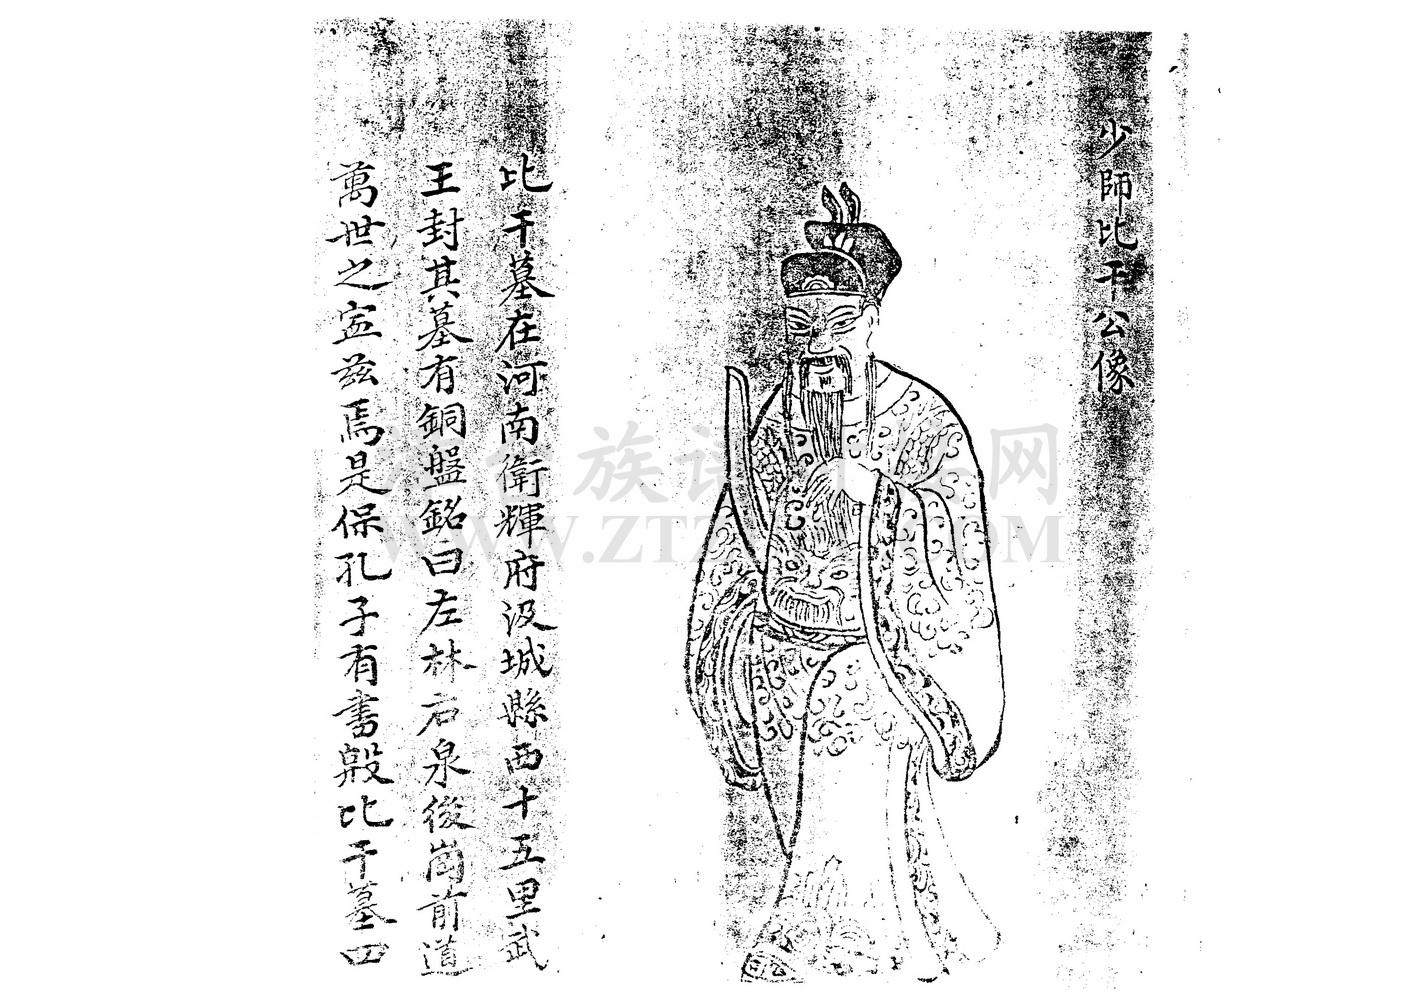 少師比干公像
比干墓在河南衛輝府汲城縣西十五里武
王封其墓有銅盤銘曰左林右泉後崗前道
萬世之寍兹焉是保孔子有書殷比干墓四
族谱 网
WWW.ZTZ .COM